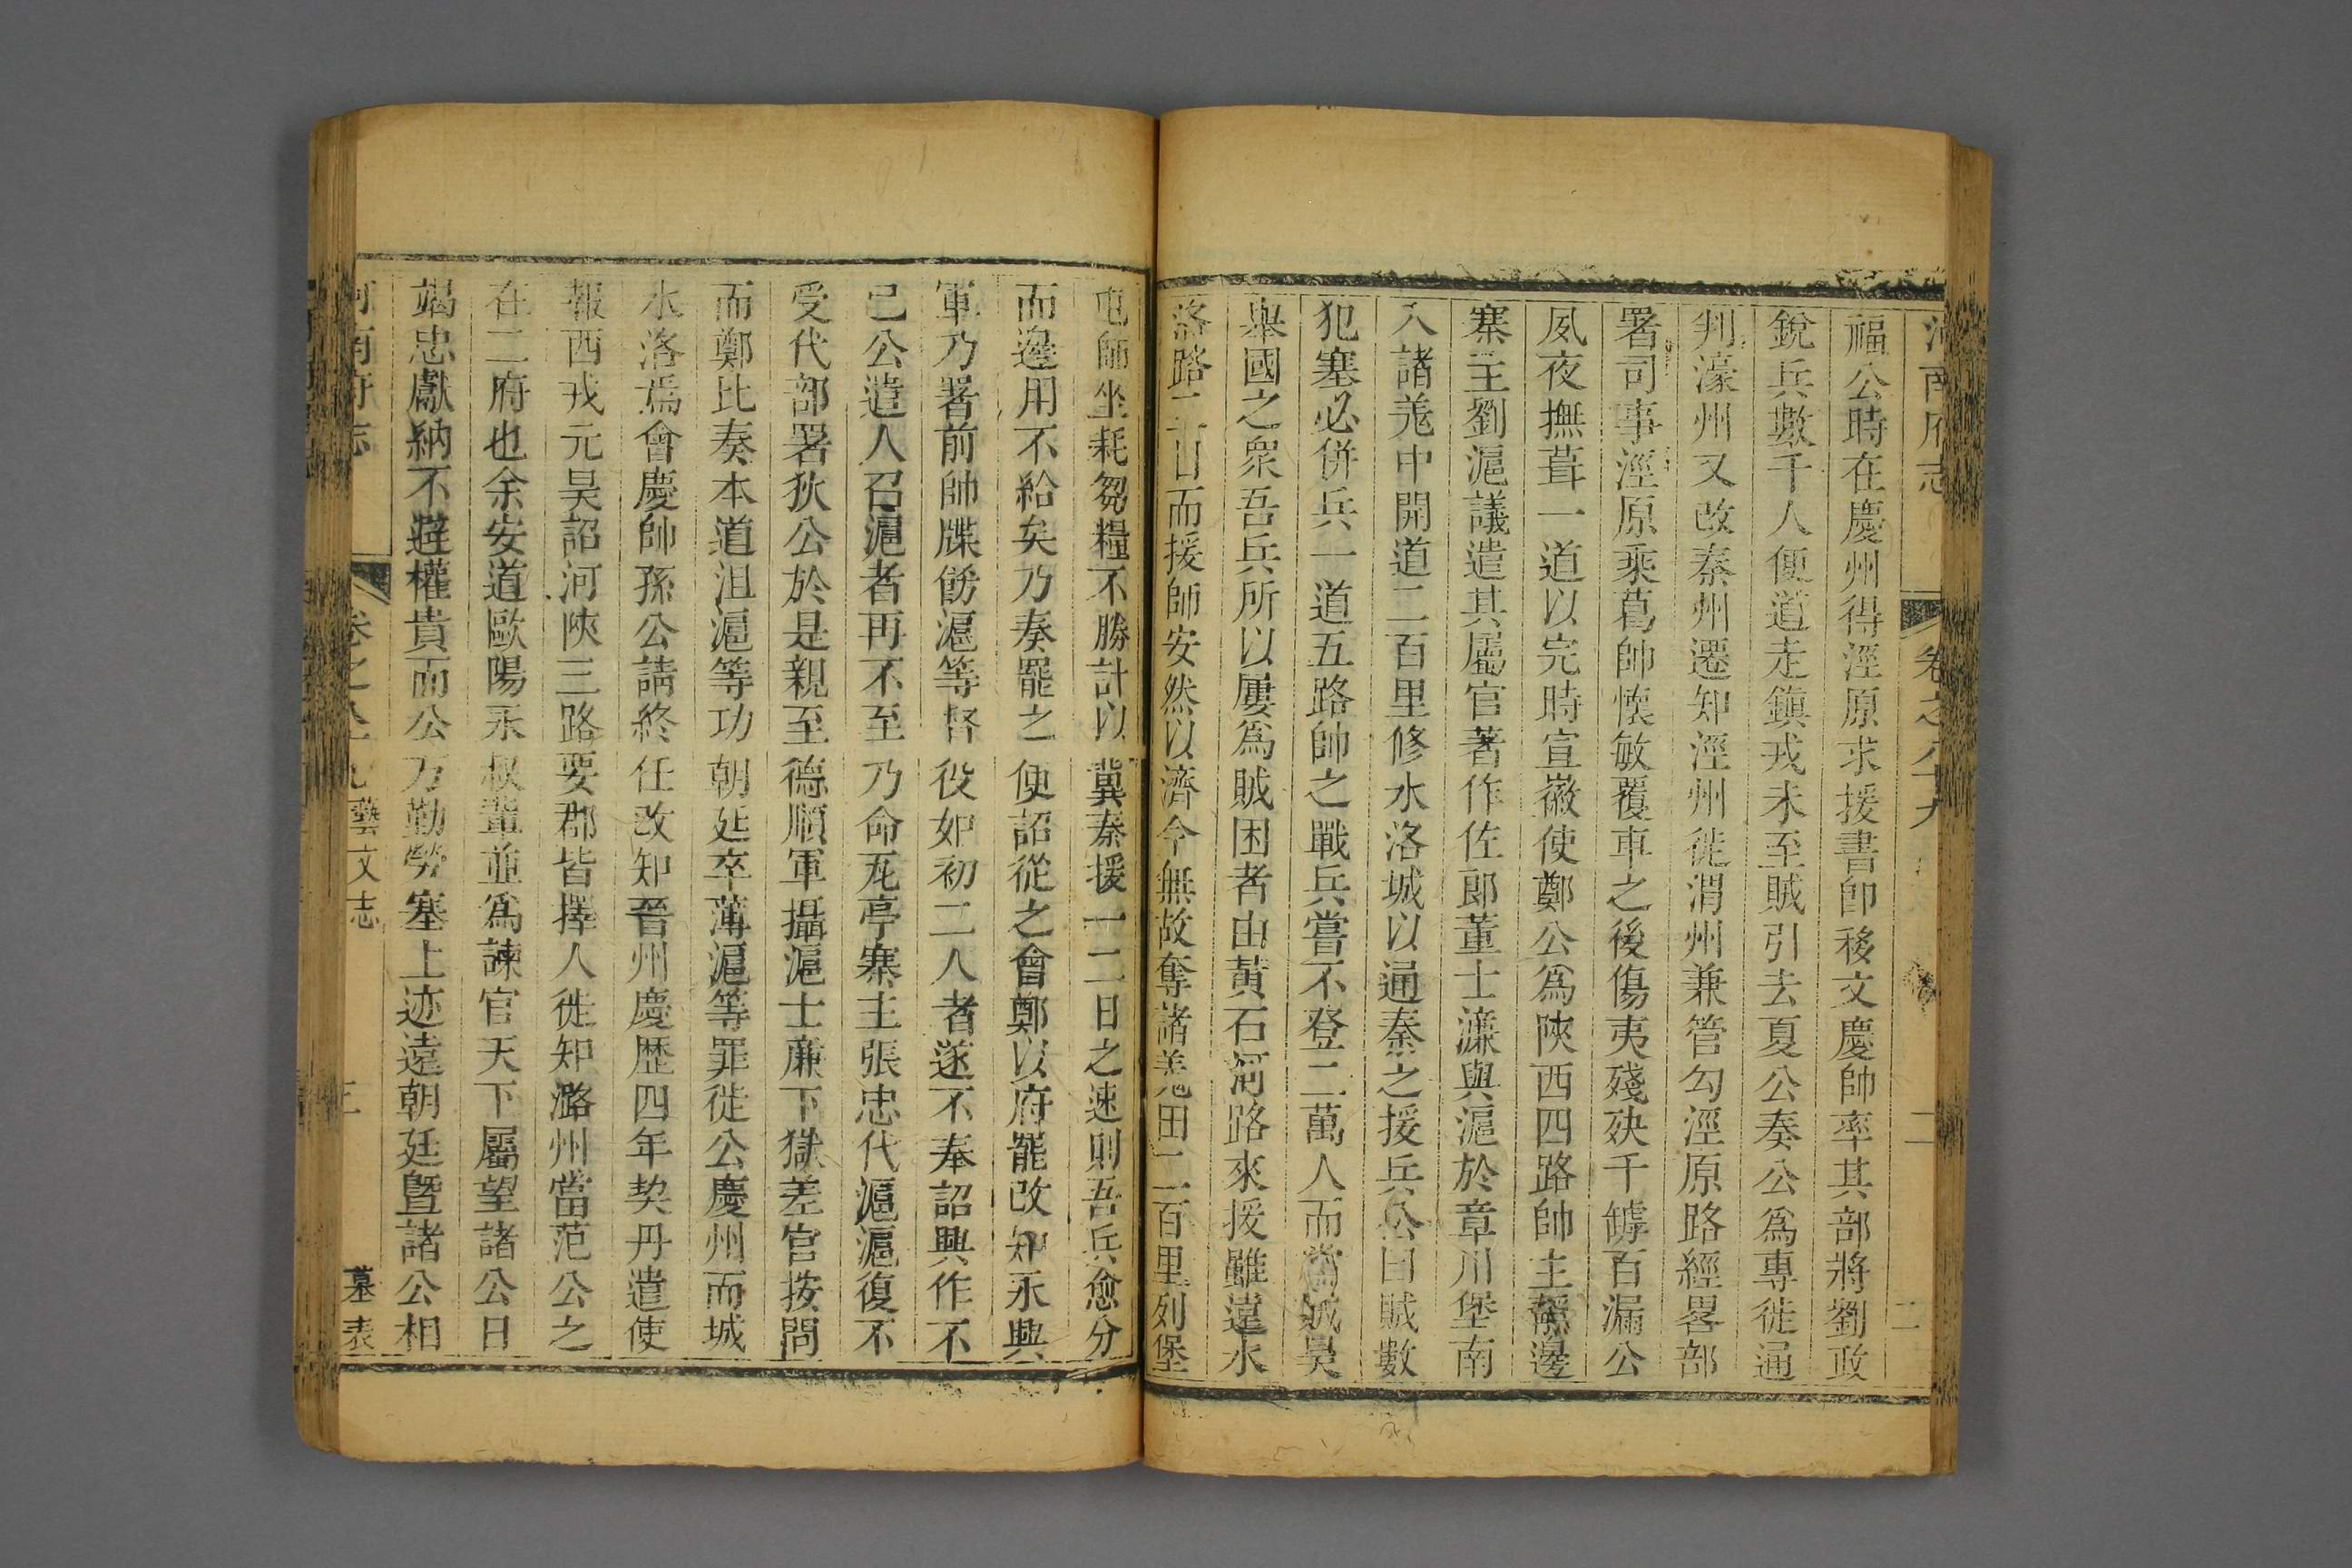 河南府志 卷之八十九 二
福公時在慶州得涇原求援書卽移文慶帥率其部將劉政
銳兵數千人便道走鎮戎未至賊引去夏公奏公爲專徙通
判濠州又改秦州遷知涇州徙渭州兼管勾涇原路經畧部
署司事涇原乘葛帥懷敏覆車之後傷夷殘殃千罅百漏公
夙夜撫葺一道以完時宣徽使鄭公爲陝西四路帥主靜邊
寨主劉滬議遣其屬官著作佐郎董士濂與滬於章川堡南
入諸羌中開道二百里修水洛城以通秦之援兵公曰賊數
犯塞必併兵一道五路帥之戰兵嘗不登二萬人而當賊昊
舉國之衆吾兵所以屢爲賊困者由黃石河路來援雖遠水
洛路二日而援師安然以濟今無故奪諸羌田二百里列堡
屯師坐耗芻糧不勝計以冀秦援一二日之速則吾兵愈分
而邊用不給矣乃奏罷之便詔從之會鄭以府罷改知永興
軍乃署前帥牒飭滬等督役如初二人者遂不奉詔興作不
已公遣人召滬者再不至乃命瓦亭寨主張忠代滬滬復不
受代部署狄公於是親至德順軍攝滬士廉下獄差官按問
而鄭比奏本道沮滬等功朝廷卒薄滬等罪徙公慶州而城
水洛焉會慶帥孫公請終任改知晉州慶歷四年契丹遣使
報西戎元昊詔河陝三路要郡皆擇人徙知潞州當范公之
在二府也余安道歐陽永叔輩並爲諫官天下屬望諸公日
竭忠獻納不避權貴而公方勤勞塞上迹遠朝廷曁諸公相
河南府志 卷之八十九 藝文志 墓表 三